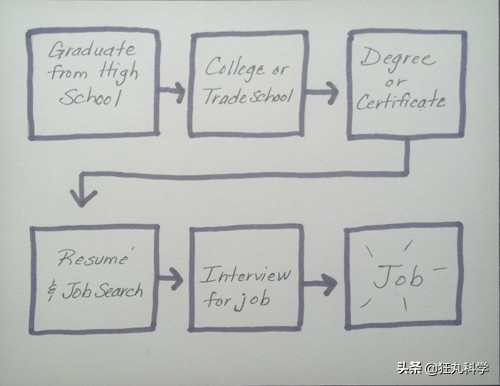 Graduate
from High
School
College or
Trade School
Degree
or
Certificate
Resumé
& Job Search
Interview
for job
Job
头条 @狂丸科学